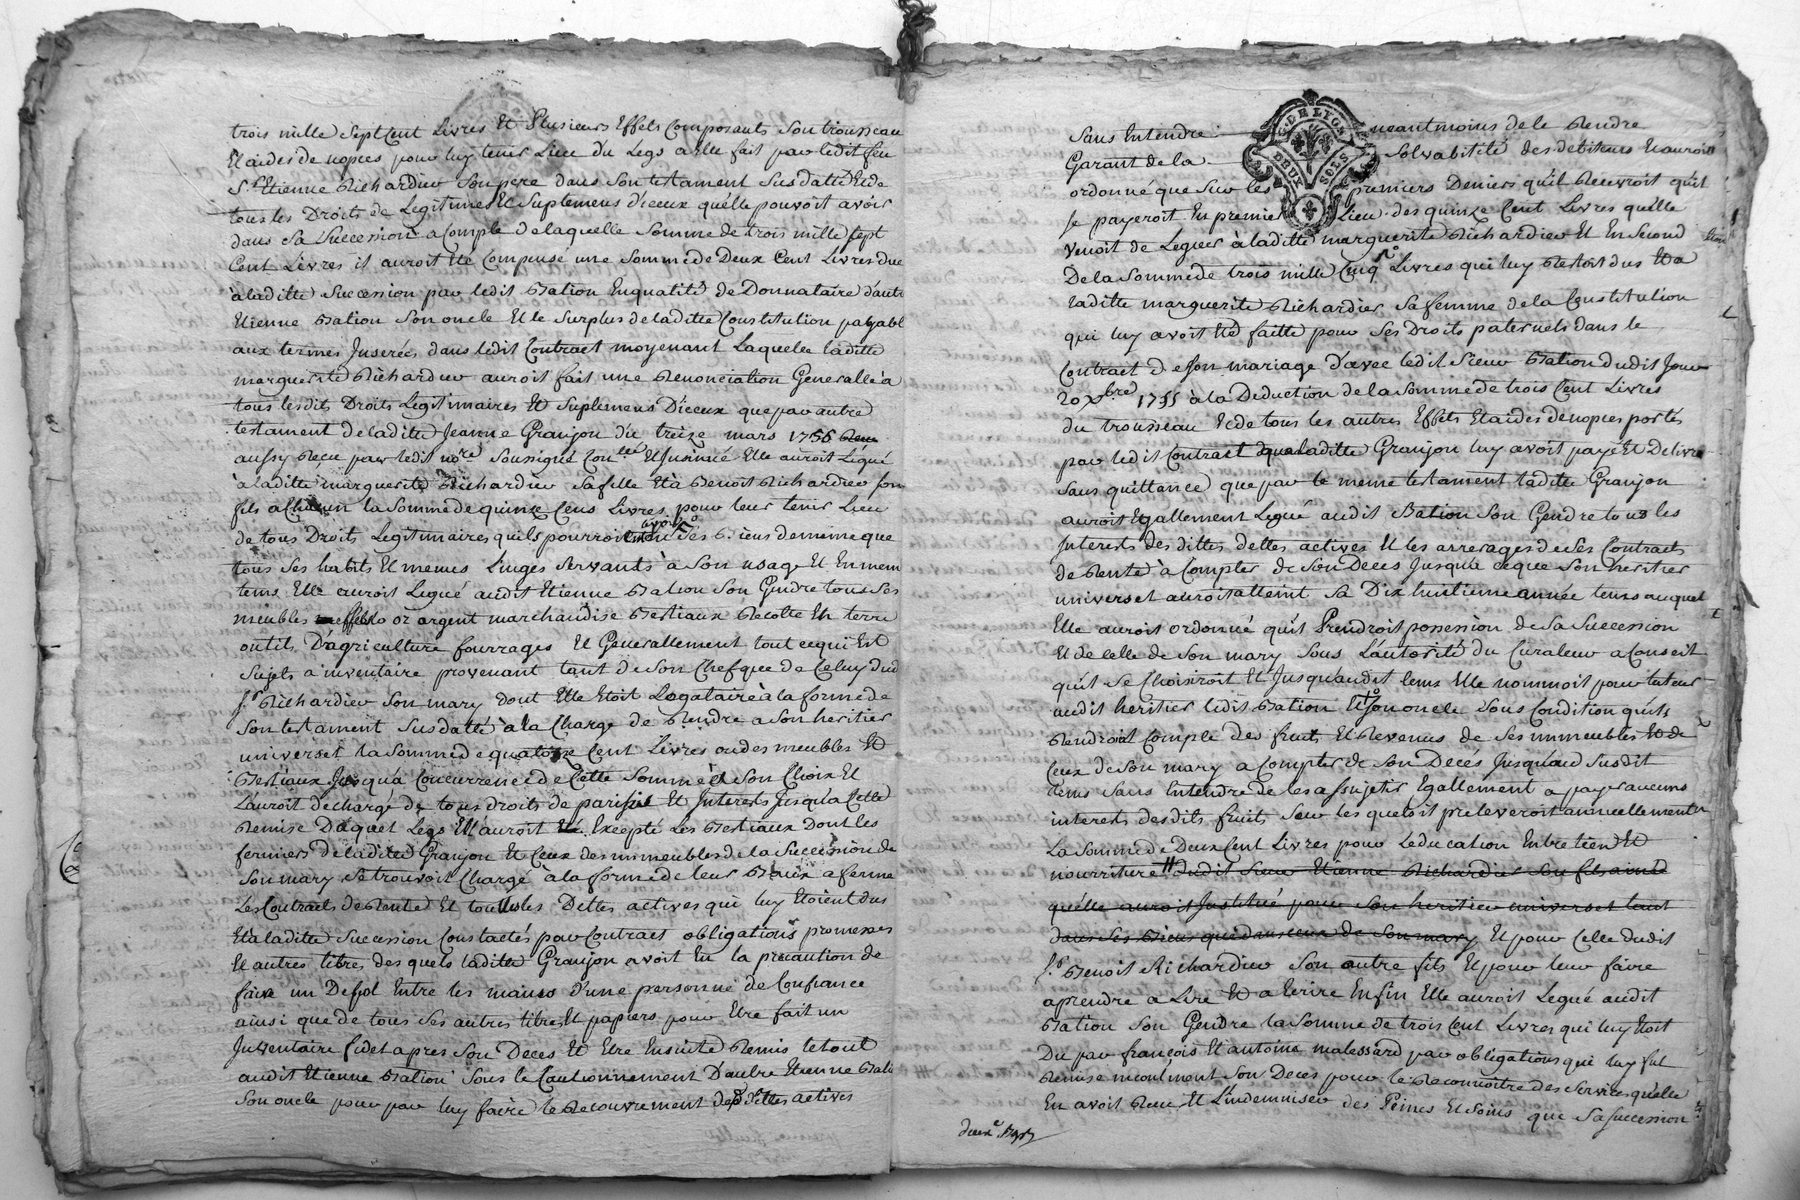 trois mille Sept Cent Livres Et Plusieurs Effets Composants Son trousseau
Et aides de nopces pour luy tenir Lieu du Legs a elle fait par ledit feu
Sr Etienne Richardier Son pere dans Son testament Susdatté Et de
tous les Droits de Legitimes Et Suplemens d'iceux quelle pouvoit avoir
dans Sa Succession a Compte de laquelle Somme de trois mille Sept
Cent Livres il auroit Eté Compensé une Somme de Deux Cent Livres due
à laditte Sucession par ledit Bation En qualité de Donnataire d'autre
Etienne Bation Son oncle Et le Surplus de laditte Constitution payabl
aux termes Inserées dans ledit Contract moyenant Laquelle laditte
marguerite Richardier auroit fait une Renonciation Generalle à
tous lesdits Droits Legitimaires Et Suplemens D'iceux que par autre
testament de laditte Jeanne Granjon du treize mars 1756
aussy Recu par ledit nore Soussigné Con.lé Et Insinué Elle auroit Légué
à laditte marguerite Richardier Sa fille Et à Benoit Richardier son
fils a Chacun la Somme de quinze Cens Livres pour leur tenir Lieu
de tous Droits Legitimaires quils pourroient avoir Ses Biens de meme que
tous Ses habits Et menus Linges Servants à Son usage Et En mem
tems Elle auroit Legué audit Etienne Bation Son Gendre tous Ses
meubles effets or argent marchandise Bestiaux Recolte En terre
outils D'agriculture fourrages Et Generallement tout cequi Est
Sujets a inventaire provenant tant de Son Chef que de Celuy dud
Sr Richardier Son mary dont Elle Etoit Legataire à la forme de
Son testament Susdatté à la Charge de Rendre a Son heritier
universel la Somme de quatorze Cent Livres ou des meubles Et
Bestiaux Jusqu'a Concurrence de Cette Somme à Son Choix Et
Lauroit dechargé de tous droits de parisis Et Interests Jusqu'a Cette
Remise Duquel Legs Ell'auroit Excepté Les Bestiaux Dont les
fermiers de laditte Granjon Et Ceux des immeubles de la Succession de
Son mary Se trouvoit Chargé à la forme de leur Baux a ferme
Les Contracts de Rente Et touttes les Dettes actives qui luy Etoient dus
Et à laditte Sucession Constactés par Contract obligations promesses
Et autres titres des quels laditte Granjon avoit Eu la precaution de
faire un Depol Entre les mains d'une personne de Confiance
ainsi que de tous Ses autres titres Et papiers pour Etre fait un
Inventaire fidel apres Son Deces Et Etre Ensuitte Remis le tout
audit Etienne Bation Sous le Cautionnement D'autre Etienne Bati
Son oncle pour par luy faire le Recouvrement des Dettes actives
Sans Entendre neantmoins de le Rendre
Garant de la Solvabilité des debiteurs Et auroit
ordonné que Sur les premiers Deniers qu'il Recevroit qu'il
Se payeroit En premier Lieu des quinze Cent Livres quelle
Venoit de Leguer à laditte marguerite Richardier Et En Second
De la Somme de trois mille Cinq Livres qui luy Restoit dus Et a
laditte marguerite Richardier Sa femme de la Constitution
qui luy avoit Eté faitte pour Ses Droits paternels dans le
Contract de Son mariage D'avec ledit Sieur Bation dudit Jour
20 Xbre 1755 à la Deduction de la Somme de trois Cent Livres
du trousseau Et de tous les autres Effets Et aides de nopces portés
par ledit Contract que laditte Granjon luy avoit payé Et Delivré
Sans quittance que par le meme testament laditte Granjon
auroit Egallement Legué audit Bation Son Gendre tous les
Interests des dittes dettes actives Et les arrerages de Ses Contracts
de Rente à Compter de Son Deces Jusqu'a ce que Son heritier
universel auroit atteint Sa Dix huitieme année tems auquel
Elle auroit ordonné qu'il Prendroit possession de Sa Succession
Et de Celle de Son mary Sous L'autorité du Curateur a Conseil
qu'il Se Choisiroit Et Jusqu'audit tems Elle nommoit pour tuteur
audit heritier ledit Bation Et Son oncle Sous Condition quils
Rendroit Compte des fruits Et Revenus de Ses immeubles Et de
Ceux de Son mary a Compter de Son Decés Jusqu'aud Susdit
tems Sans Entendre de les assujetir Egallement a payer aucuns
interests desdits fruits Sur lesquels il preleveroit annuellement
La Somme de Deux Cent Livres pour Léducation Entretien Et
nourriture dudit Sieur Etienne Richardier Son fils ainé
quelle auroit Institué pour Son heritier universel tant
dans Ses Biens que dans ceux de Son mary Et pour Celle dudit
Sr Benoit Richardier Son autre fils Et pour leur faire
aprendre a Lire Et a Ecrire Enfin Elle auroit Legué audit
Bation Son Gendre la Somme de trois Cent Livres qui luy Etoit
Du par françois Et antoine malessard par obligation qui luy fut
Remise incontinent Son Deces pour le Reconnoitre des Services quelle
En avoit Recu Et L'indemniser des Peines Et Soins que Sa Succession
G. DE LYON
DEUX SOLS